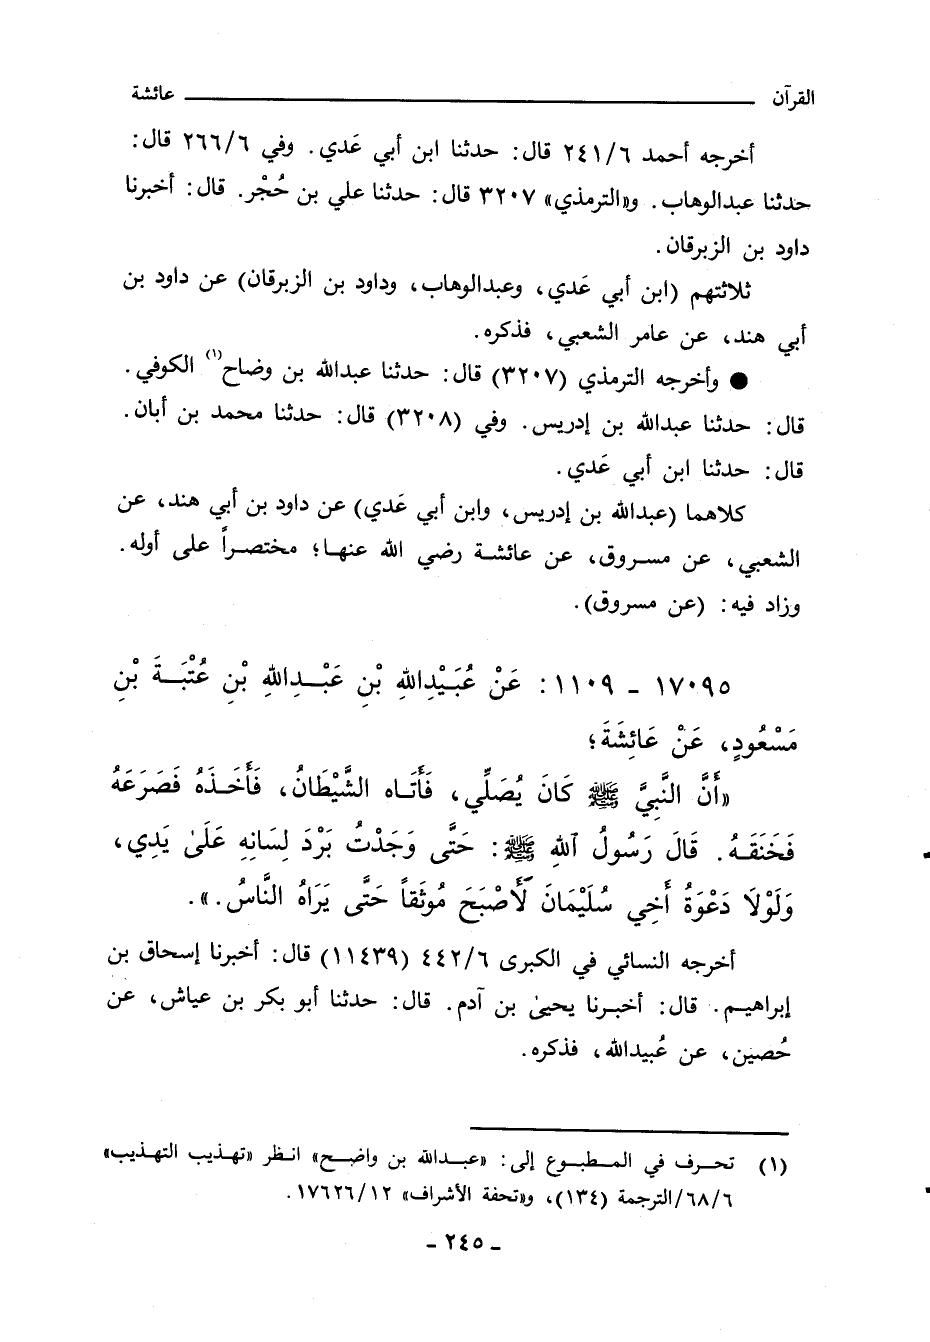 القرآن عائشة
أخرجه أحمد ٢٤١/٦ قال: حدثنا ابن أبي عَدي. وفي ٢٦٦/٦ قال:
حدثنا عبدالوهاب. و«الترمذي» ٣٢٠٧ قال: حدثنا علي بن حُجْر. قال: أخبرنا
داود بن الزبرقان.
ثلاثتهم (ابن أبي عَدي، وعبدالوهاب، وداود بن الزبرقان) عن داود بن
أبي هند، عن عامر الشعبي، فذكره.
● وأخرجه الترمذي (٣٢٠٧) قال: حدثنا عبدالله بن وضاح(١) الكوفي.
قال: حدثنا عبدالله بن إدريس. وفي (٣٢٠٨) قال: حدثنا محمد بن أبان.
قال: حدثنا ابن أبي عَدي.
كلاهما (عبدالله بن إدريس، وابن أبي عَدي) عن داود بن أبي هند، عن
الشعبي، عن مسروق، عن عائشة رضي الله عنها؛ مختصراً على أوله.
وزاد فيه: (عن مسروق).
١٧٠٩٥ - ١١٠٩: عَنْ عُبَيْدِاللهِ بْنِ عَبْدِاللهِ بْنِ عُتْبَةَ بْنِ
مَسْعُودٍ، عَنْ عَائِشَةَ؛
«أَنَّ النَّبِيَّ ﷺ كَانَ يُصَلِّي، فَأَتَاه الشَّيْطَانُ، فَأَخَذَهُ فَصَرَعَهُ
فَخَنَقَهُ. قَالَ رَسُولُ ٱللهِ ﷺ: حَتَّى وَجَدْتُ بَرْدَ لِسَانِهِ عَلَىٰ يَدِي،
وَلَوْلَا دَعْوَةُ أَخِي سُلَيْمَانَ لَأَصْبَحَ مُوثَقاً حَتَّى يَرَاهُ النَّاسُ.».
أخرجه النسائي في الكبرى ٤٤٢/٦ (١١٤٣٩) قال: أخبرنا إسحاق بن
إبراهيم. قال: أخبرنا يحيىٰ بن آدم. قال: حدثنا أبو بكر بن عياش، عن
حُصين، عن عُبيدالله، فذكره.
(١) تحرف في المطبوع إلى: «عبدالله بن واضح» انظر «تهذيب التهذيب»
٦٨/٦/الترجمة (١٣٤)، و«تحفة الأشراف» ١٧٦٢٦/١٢.
- ٢٤٥ -